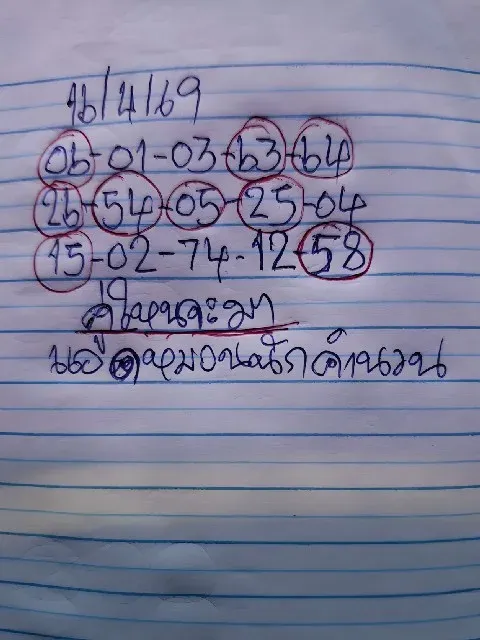 16/4/69
06-01-03-63-64
26-54-05-25-04
15-02-74-12-58
คู่ไหนจะมา
หมอนนักคำนวน